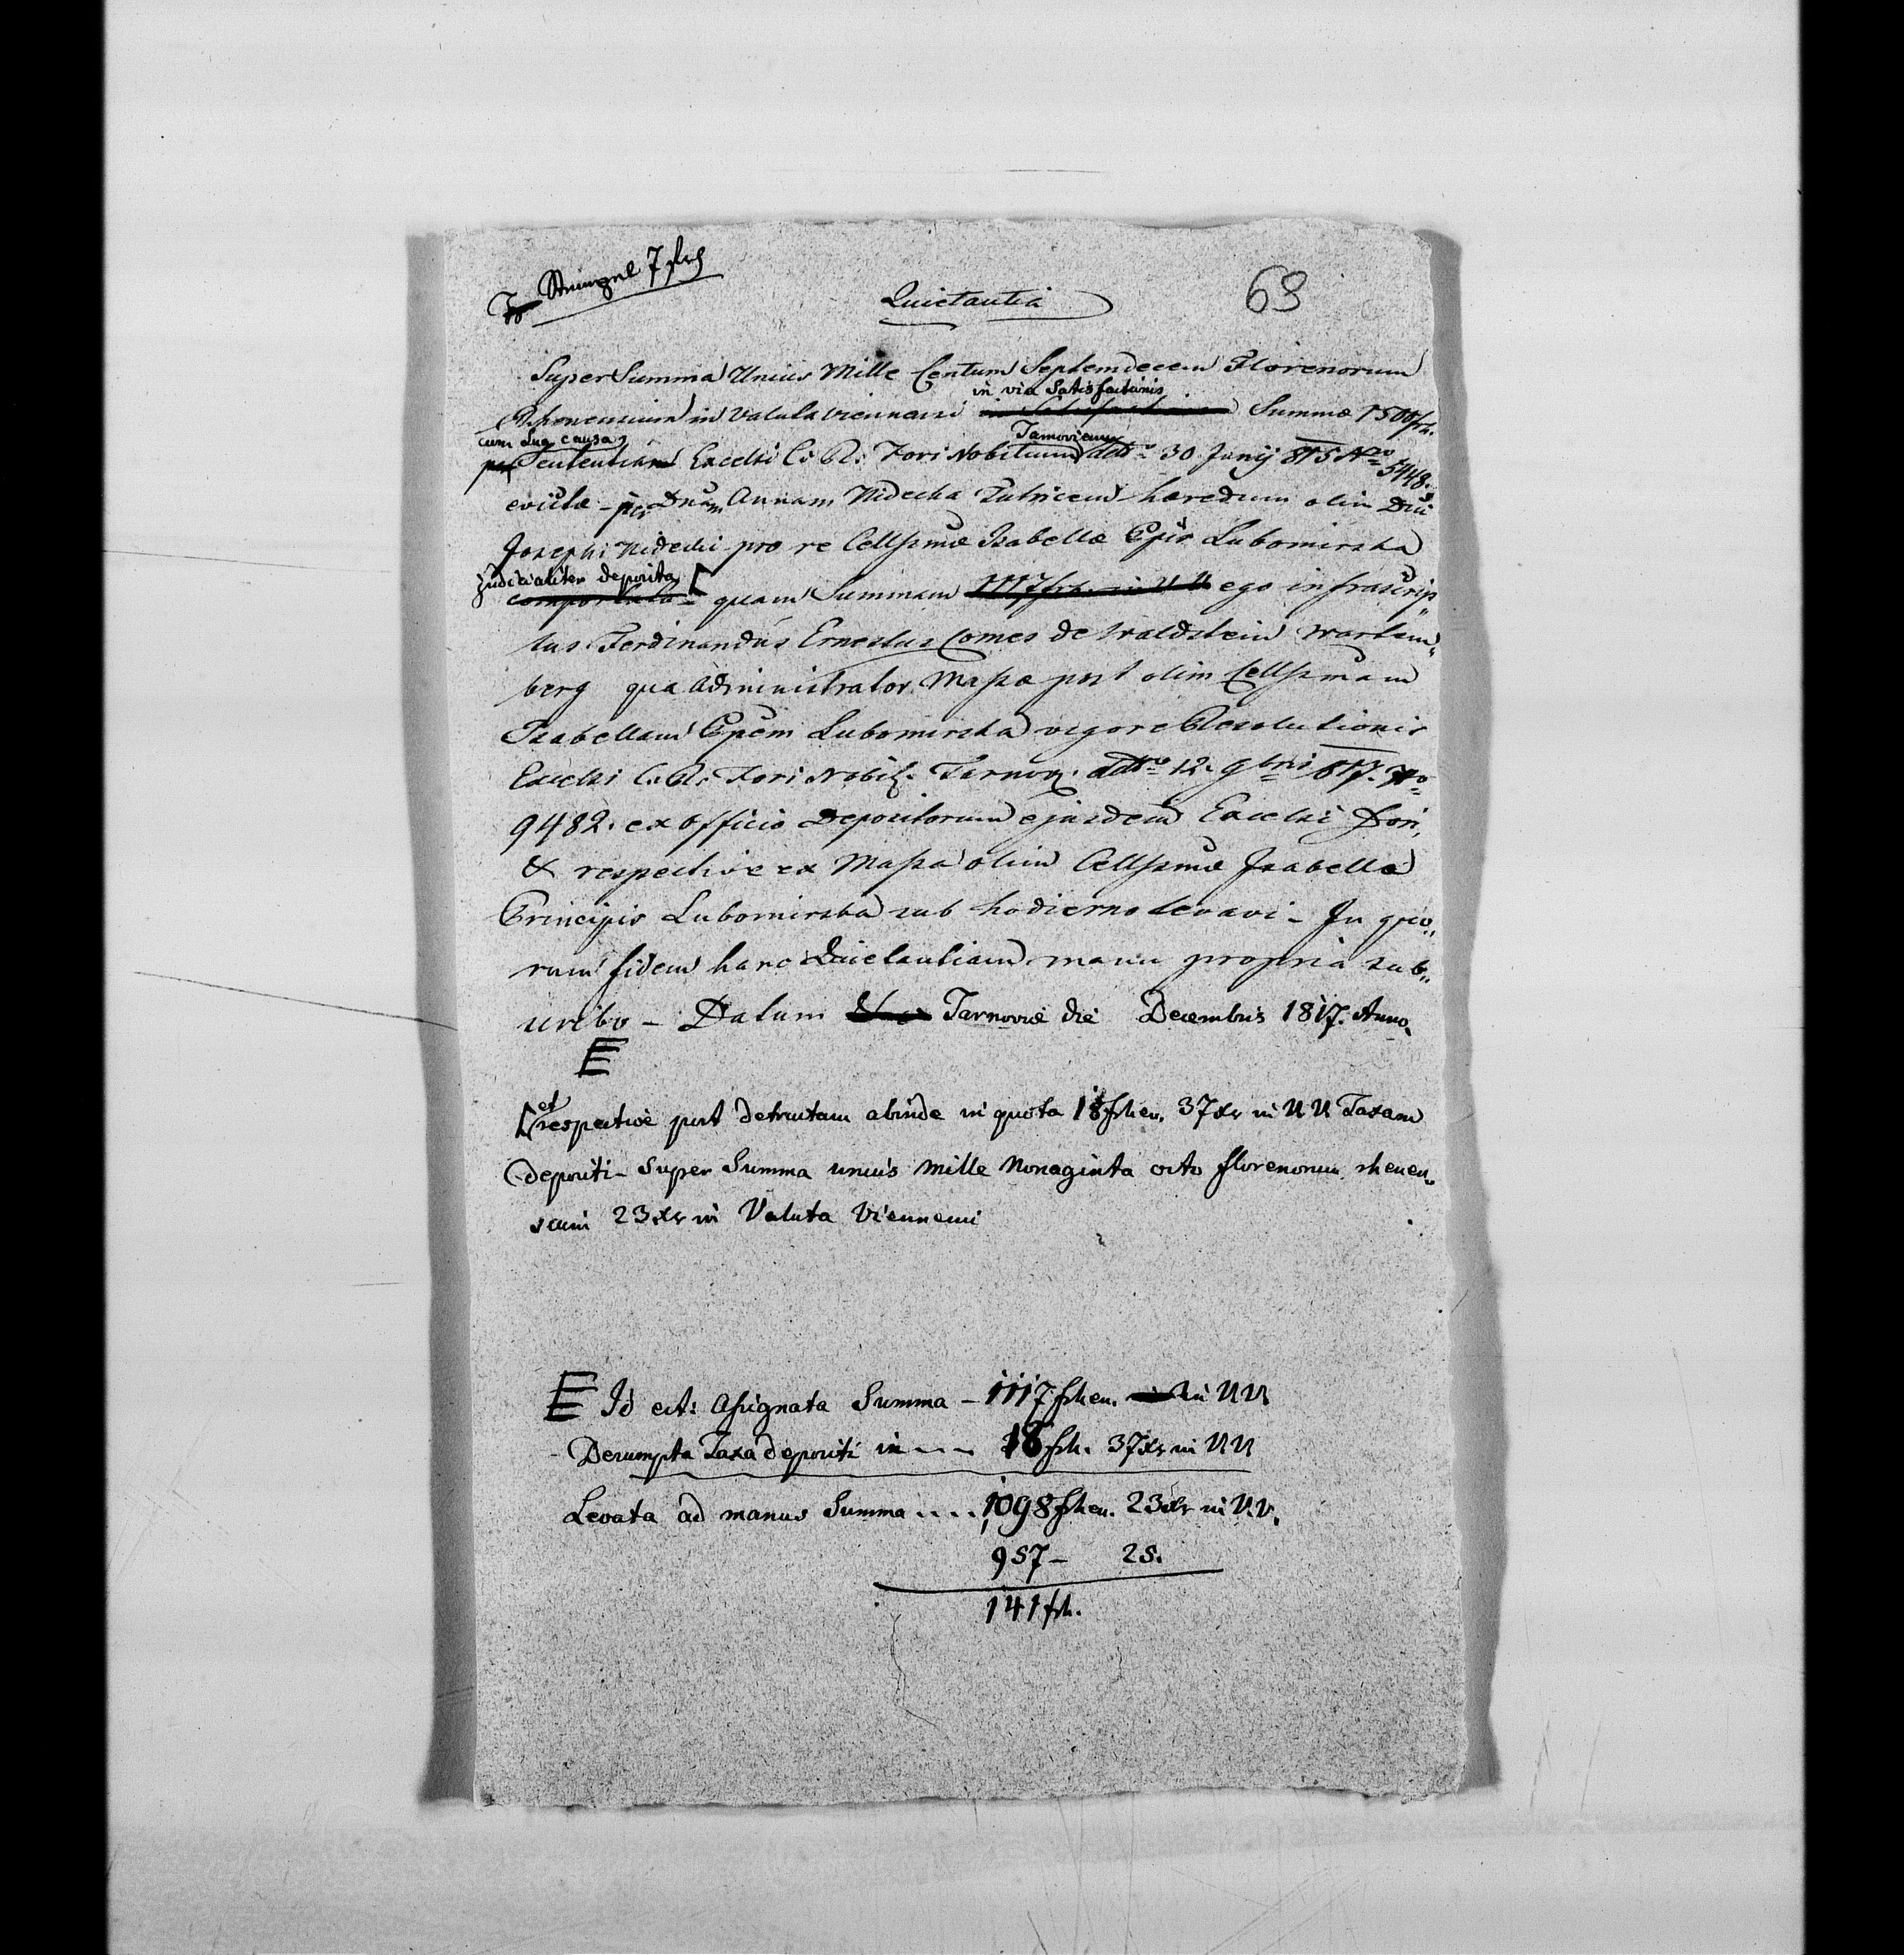 Stempel 7 frh
69
Quietantia
Super Summa Unius Mille Centum Septemdecem Florenorum
in via Satisfactionis
Rhenensium in Valuta viennensi Summæ 1500 frh.
cum sua causa
Tarnoviensis
per Sententiam Excelsi C. R. Fori Nobilium ddto 30 Junij 815 Nro 5948.
evictæ - per Dnam Annam Nidecka Tutricem hæredum olim Dni
Josephi Nidecki pro re Cellssmæ Isabellæ Epis Lubomirska
judicialiter deposita
comportata - quam Summam 1117 frh. in VV ego infrascrip„
tus Ferdinandus Ernestus Comes de Waldstein Wartem„
berg qua Administrator Massæ post olim Cellssmam
Isabellam Ppem Lubomirska vigore Resolutionis
Excelsi C. R. Fori Nobil. Tarnov. ddto 12. 9bris 817. No
9482. ex officio Depositorum ejusdem Excelsi Fori,
& respective ex Massa olim Cellssmæ Isabellæ
Principis Lubomirska sub hodierno levavi - In quo„
rum fidem hanc Quietantiam manu propria sub„
scribo - Datum Tarnoviæ die Decembris 1817. Anno.
E
et
respective post detractam abinde in quota 18 frhen. 37 xr in VV Taxam
depositi - Super Summa unius mille Nonaginta octo florenorum rhenen„
sium 23 xr in Valuta Viennensi
E Id est: Assignata Summa - 1117 frhen. in VV
Desumpta Taxa depositi in - - - 18 frh. 37 xr in VV
Levata ad manus Summa . . . . 1098 frhen. 23 xr in V.V.
957 - 25.
141 frh.